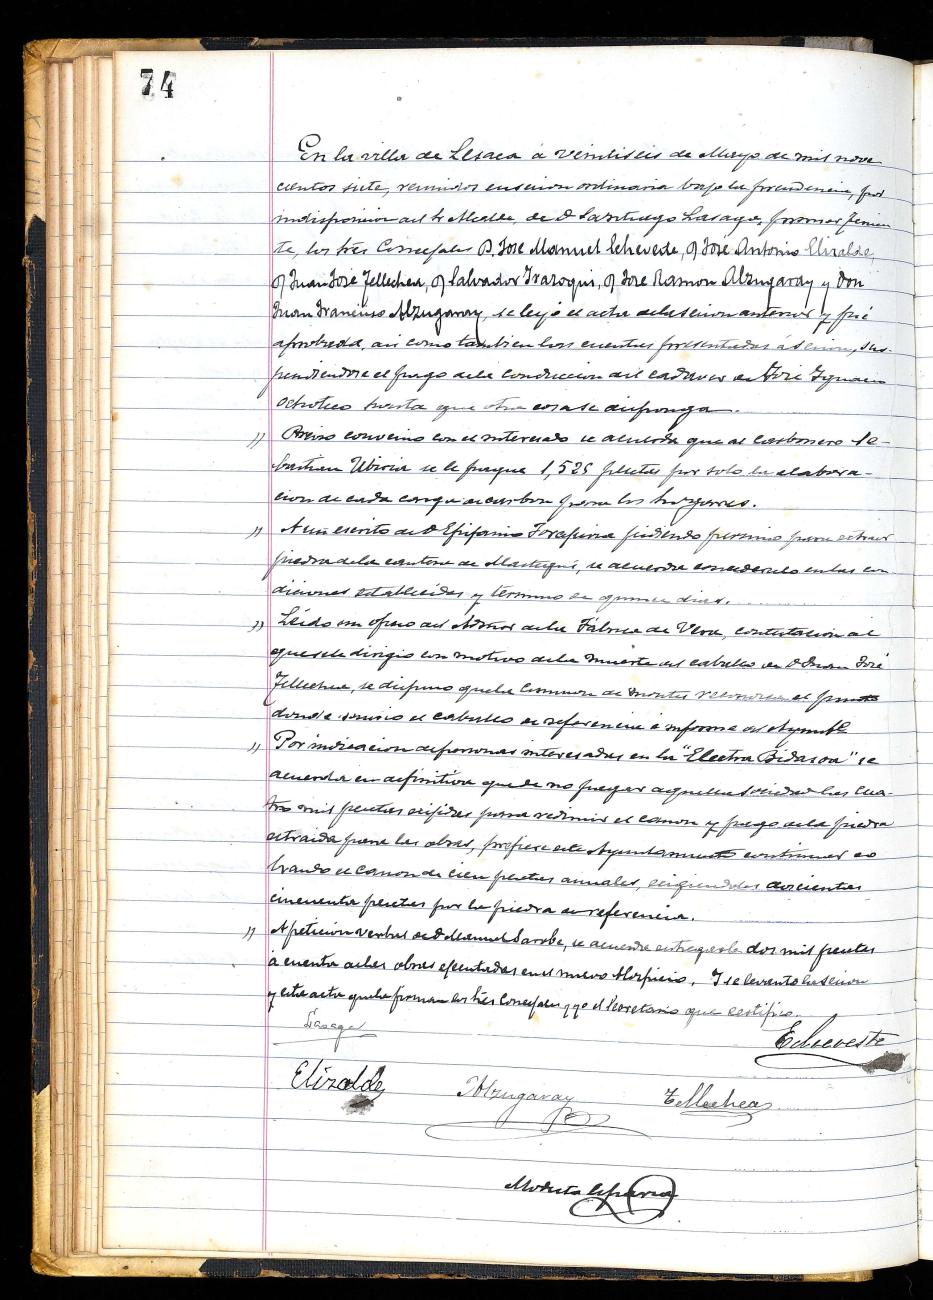 74
En la villa de Lesaca a veintiseis de Mayo de mil nove-
cientos siete, reunidos en sesion ordinaria bajo la presidencia, por
indisposicion del Sr Alcalde de D Santiago Lasaga, primer Tenien-
te, los Sres Concejales D. José Manuel Echeveste, D José Antonio Elizalde
D Juan José Tellechea, D Salvador Irazoqui, D José Ramon Alzugaray y Don
Juan Francisco Alzugaray, se leyó el acta de la sesion anterior y fué
aprobada, asi como tambien las cuentas presentadas á sesion, sus-
pendiendose el pago de la conduccion del cadaver de José Ignacio
hasta que otra cosa se disponga.
" Previo convenio con el interesado se acuerda que al carbonero Se-
bastian Ubiria se le pague 1,525 pesetas por solo la elabora-
cion de cada carga de carbon para los hogares.
" A un escrito de D Epifanio pidiendo permiso para extraer
piedra de la cantera de se acuerda concederselo en las con
diciones establecidas y termino de quince dias.
" Leido un oficio del Admor de la Fábrica de Vera, contestacion al
que se le dirigio con motivo de la muerte del caballo de D Juan José
Tellechea, se dispuso que la Comision de montes reconozca el punto
donde murio el caballo de referencia é informe al Ayunto
" Por indicacion de personas interesadas en la "Electra Bidasoa" se
acuerda en definitiva que de no pagar aquella sociedad las cua-
tro mil pesetas exijidas para redimir el canon y pago de la piedra
extraida para las obras, prefiere este Ayuntamiento continuar co
brando el canon de cien pesetas anuales, exigiendoles doscientas
cincuenta pesetas por la piedra de referencia.
" A peticion verbal de D Manuel Sarobe, se acuerda entregarle dos mil pesetas
á cuenta de las obras ejecutadas en el nuevo Hospicio. Y se levantó la sesion
y esta acta que la firman los Sres Concejales y yo el Secretario que certifico.
Lasaga
Echeveste
Elizalde
Alzugaray
Tellechea
Modesto